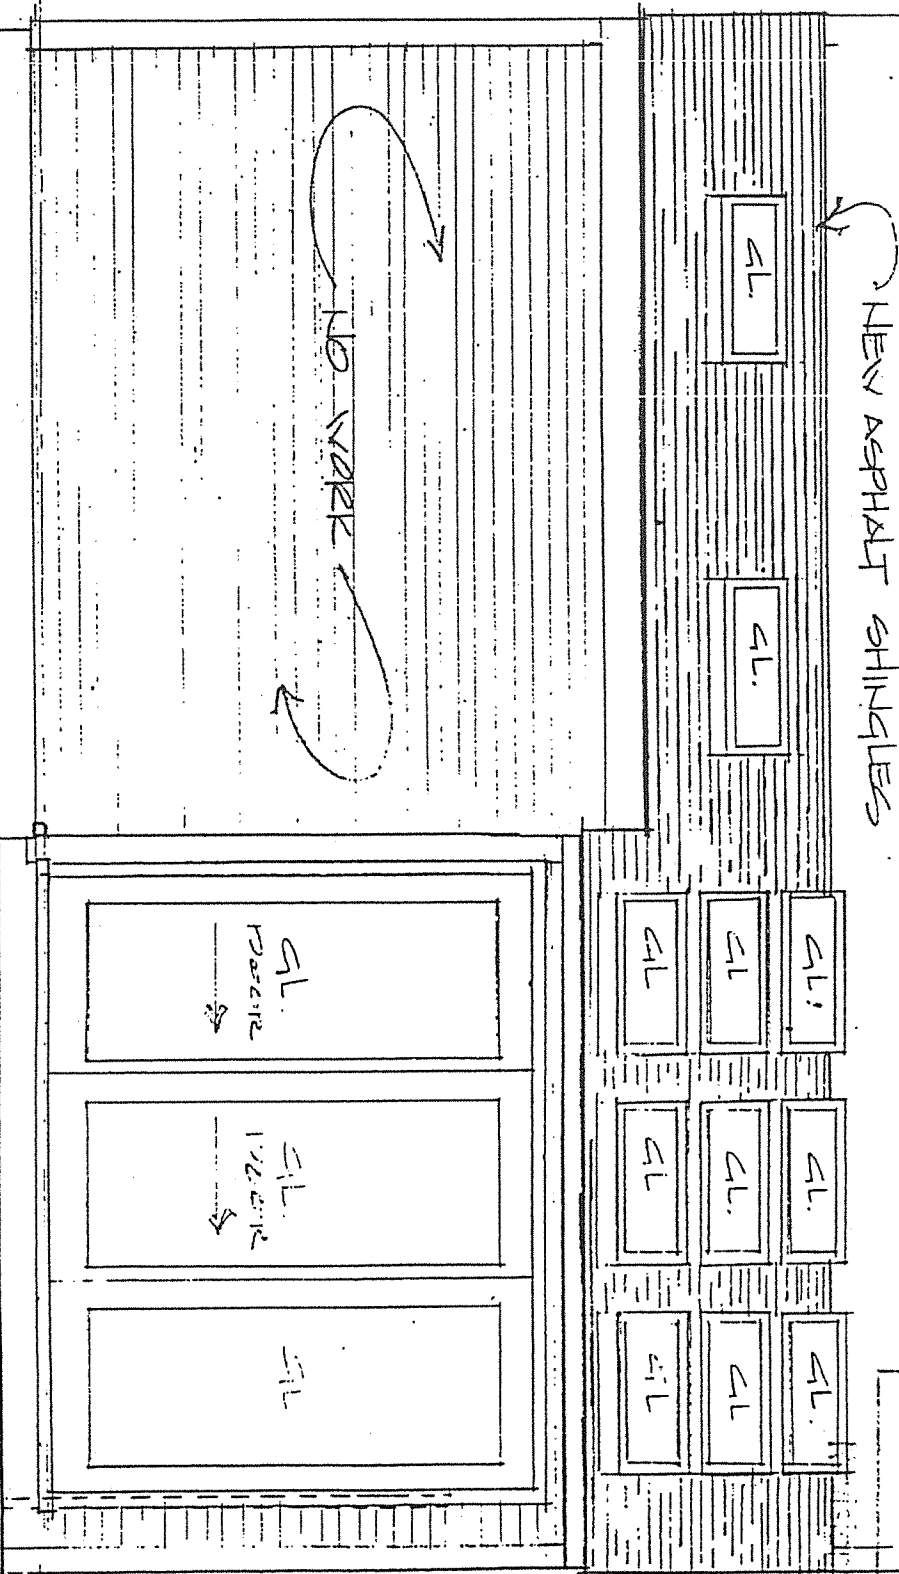 NEW ASPHALT SHINGLES
GL.
GL.
GL.
GL.
GL.
GL
GL.
GL
GL
GL
GL
NO WORK
GL.
DOOR
GL.
DOOR
GL